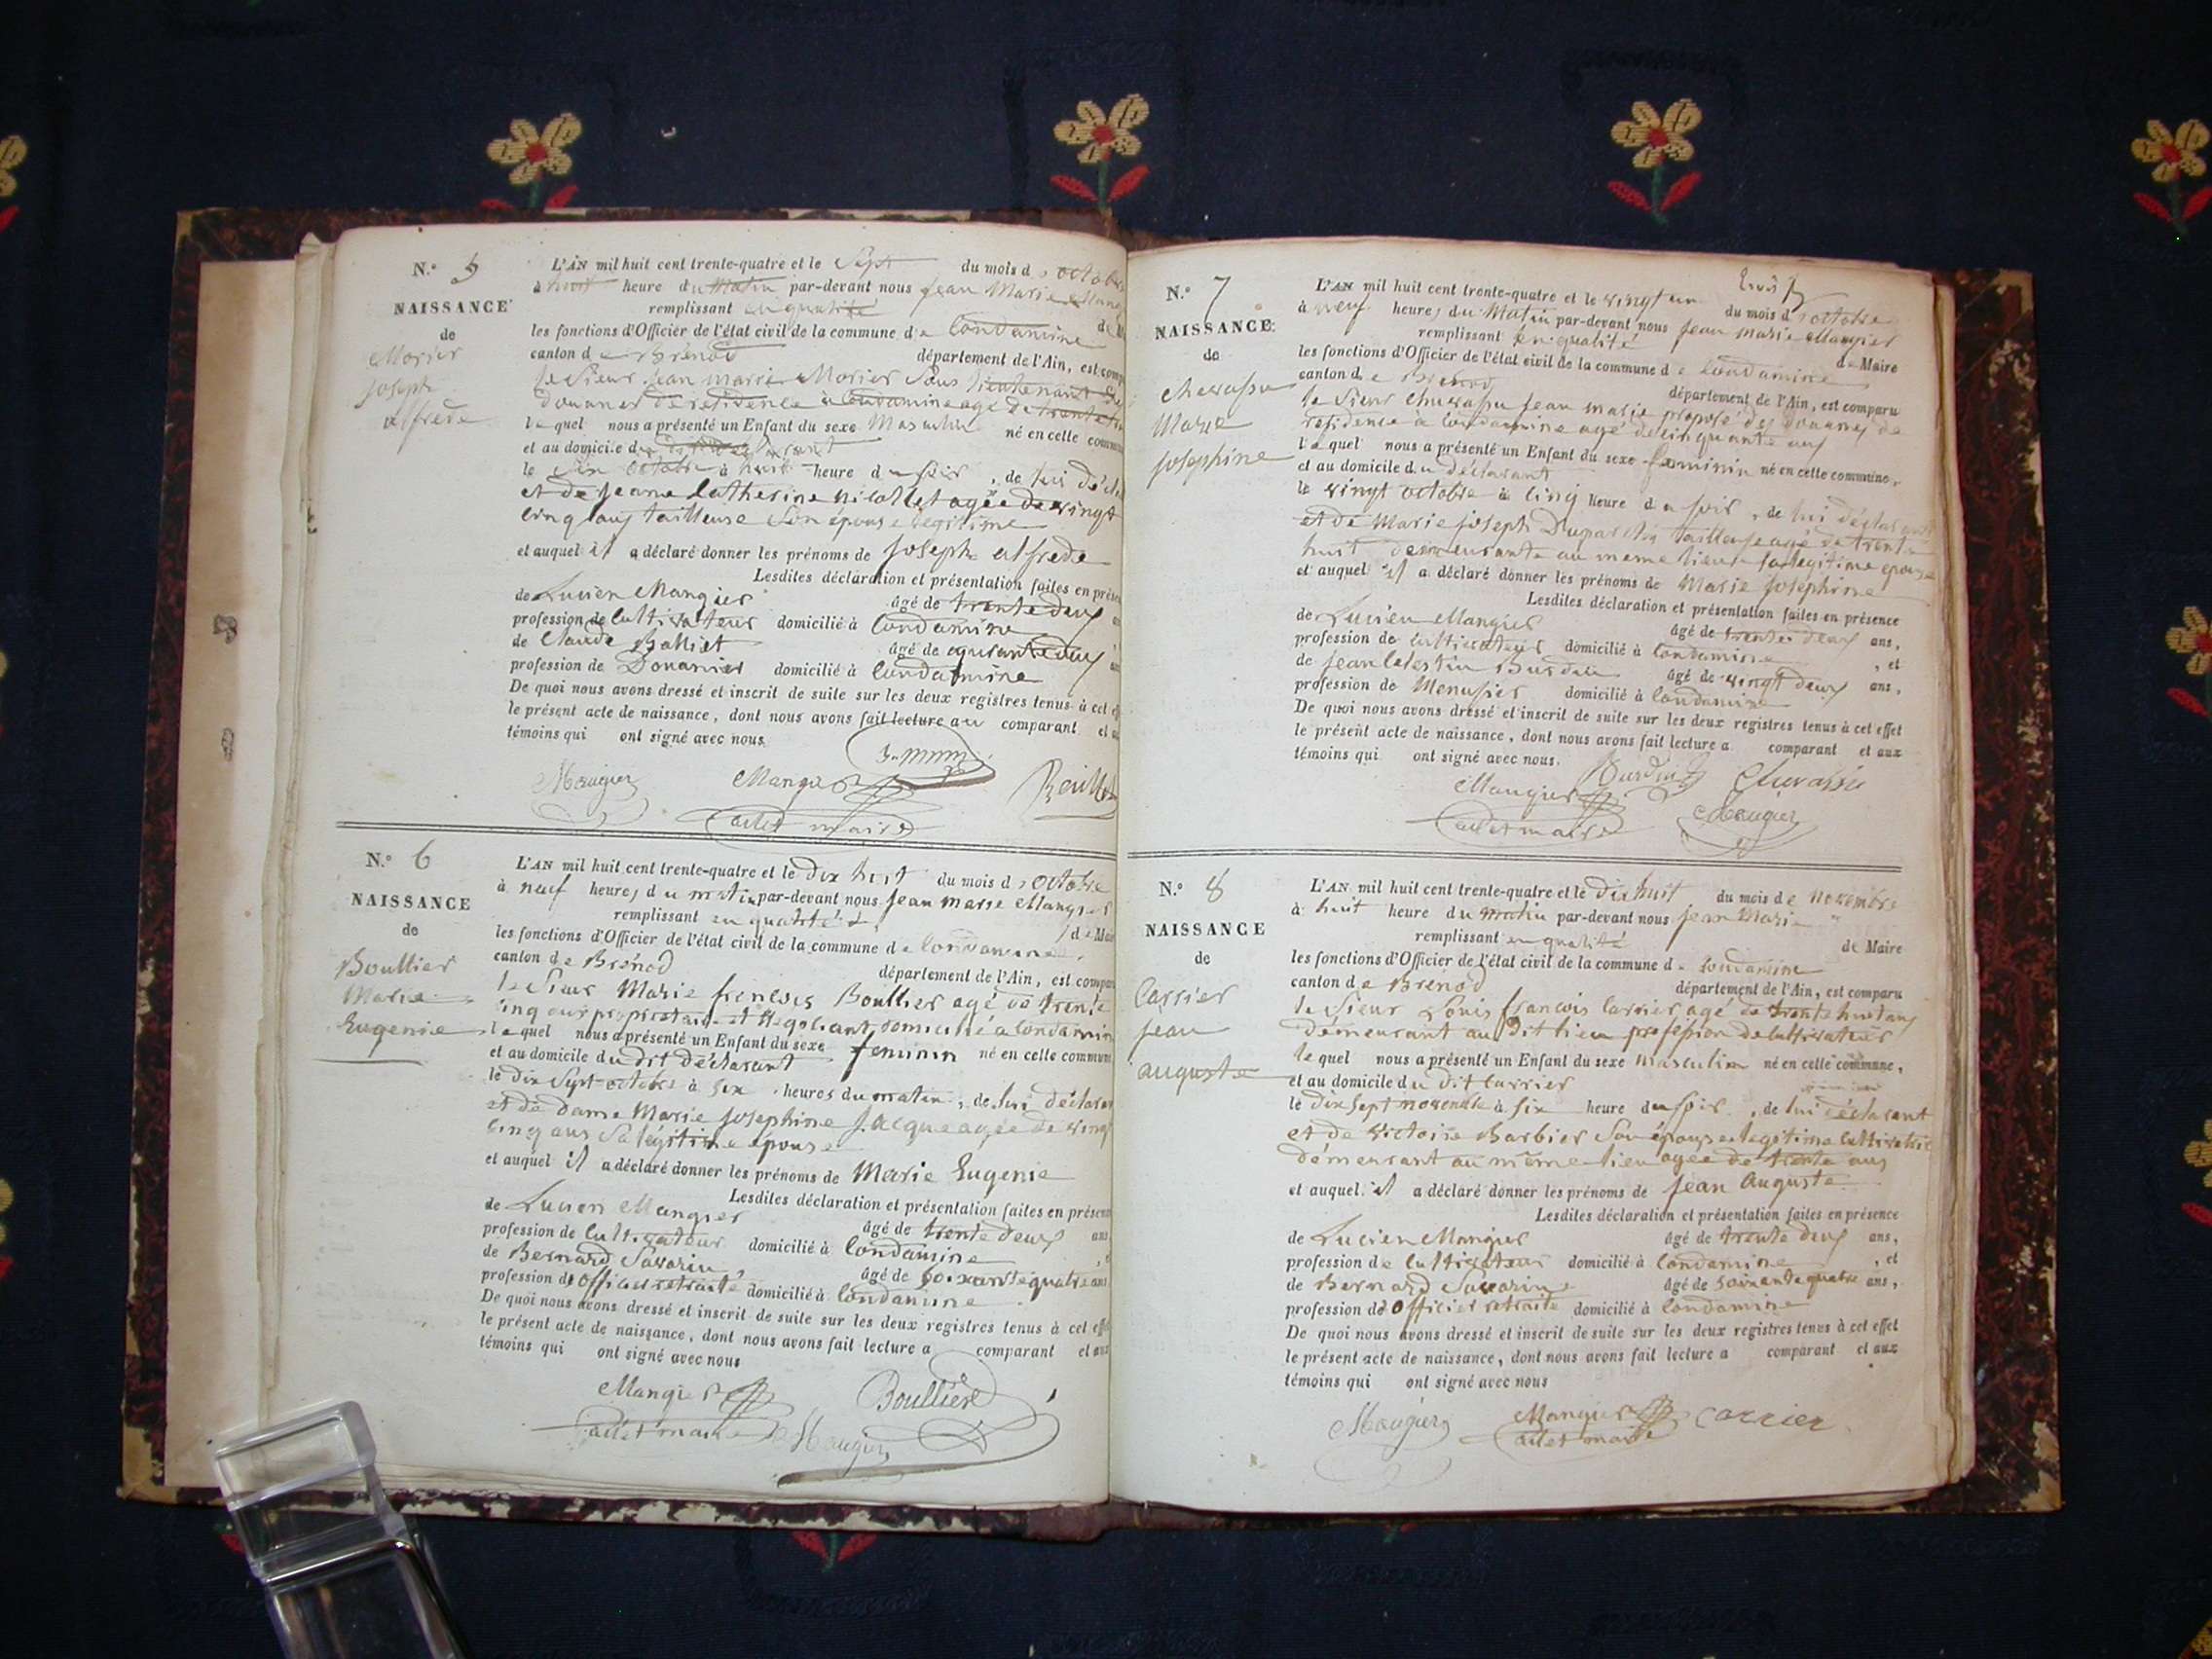 N.° 5
NAISSANCE
de
Morier
Joseph
alfrede
L'AN mil huit cent trente-quatre et le Sept du mois d'octobre
à huit heure du Matin par-devant nous Jean Marie
remplissant en qualité
les fonctions d'Officier de l'état civil de la commune de Condamine
canton de Brénod département de l'Ain, est
le Sieur Jean marie Morier Sous lieutenant
douanes de résidence à Condamine agé de
lequel nous a présenté un Enfant du sexe Masculin né en celle
et au domicile du
le Six octobre à huit heure du soir, de lui
et de jeanne Catherine Nicollet agée de vingt
cinq ans tailleuse Son épouse légitime
et auquel il a déclaré donner les prénoms de Joseph alfrede
Lesdites déclaration et présentation faites en
de Lucien Mangier âgé de trente deux
profession de Cultivateur domicilié à Condamine
de Claude âgé de
profession de Douanier domicilié à Condamine
De quoi nous avons dressé et inscrit de suite sur les deux registres tenus à cet
le présent acte de naissance, dont nous avons fait lecture au comparant et
témoins qui ont signé avec nous
Mangier Mangier
maire
N.° 6
NAISSANCE
de
Boullier
Marie
Eugenie
L'AN mil huit cent trente-quatre et le dix huit du mois d'octobre
à neuf heures du matin par-devant nous Jean marie Mangier
remplissant en qualité
les fonctions d'Officier de l'état civil de la commune de Condamine
canton de Brénod département de l'Ain, est
le Sieur Marie françois Boullier agé de trente
cinq ans propriétaire et Négociant domicilié a Condamine
lequel nous a présenté un Enfant du sexe feminin né en celle
et au domicile du dit déclarant
le dix Sept octobre à six heures du matin, de lui
et de dame Marie Josephine Jacque agée de
cinq ans Sa légitime épouse
et auquel il a déclaré donner les prénoms de Marie Eugenie
Lesdites déclaration et présentation faites en
de Lucien Mangier âgé de trente deux
profession de Cultivateur domicilié à Condamine
de Bernard Savarin, âgé de soixante quatre ans
profession d'Officier retraité domicilié à Condamine
De quoi nous avons dressé et inscrit de suite sur les deux registres tenus à cet
le présent acte de naissance, dont nous avons fait lecture a comparant et aux
témoins qui ont signé avec nous
Mangier Boullier
maire Mangier
N.° 7
NAISSANCE
de
Marie
josephine
L'AN mil huit cent trente-quatre et le vingt un du mois d'octobre
à neuf heures du Matin par-devant nous Jean marie Mangier
remplissant en qualité de Maire
les fonctions d'Officier de l'état civil de la commune de Condamine
canton de Brénod département de l'Ain, est comparu
le Sieur Jean marie préposé des douanes de
residence à Condamine agé de cinquante ans
lequel nous a présenté un Enfant du sexe feminin né en celle commune,
et au domicile du déclarant
le vingt octobre à cinq heure du soir, de lui déclarant
et de Marie joseph tailleuse agé de trente
huit demeurante au meme lieu sa légitime épouse
et auquel il a déclaré donner les prénoms de Marie josephine
Lesdites déclaration et présentation faites en présence
de Lucien Mangier âgé de trente deux ans,
profession de cultivateur domicilié à Condamine, et
de Jean Celestin âgé de vingt deux ans,
profession de Menusier domicilié à Condamine
De quoi nous avons dressé et inscrit de suite sur les deux registres tenus à cet effet
le présent acte de naissance, dont nous avons fait lecture a comparant et aux
témoins qui ont signé avec nous.
Mangier
maire Mangier
N.° 8
NAISSANCE
de
Carrier
jean
auguste
L'AN mil huit cent trente-quatre et le dix huit du mois de novembre
à huit heure du matin par-devant nous jean Marie
remplissant en qualité de Maire
les fonctions d'Officier de l'état civil de la commune de Condamine
canton de Brénod département de l'Ain, est comparu
le Sieur Louis françois Carrier agé de trente huit ans
demeurant au dit lieu profession de cultivateur
lequel nous a présenté un Enfant du sexe masculin né en celle commune,
et au domicile du dit Carrier
le dix Sept novembre à six heure du soir, de lui déclarant
et de Victoire Barbier Son épouse légitime cultivatrice
demeurant au même lieu agée de trente ans
et auquel il a déclaré donner les prénoms de jean Auguste
Lesdites déclaration et présentation faites en présence
de Lucien Mangier âgé de trente deux ans,
profession de cultivateur domicilié à Condamine, et
de Bernard Savarin âgé de soixante quatre ans,
profession d'Officier retraité domicilié à Condamine
De quoi nous avons dressé et inscrit de suite sur les deux registres tenus à cet effet
le présent acte de naissance, dont nous avons fait lecture a comparant et aux
témoins qui ont signé avec nous
Mangier Mangier Carrier
maire